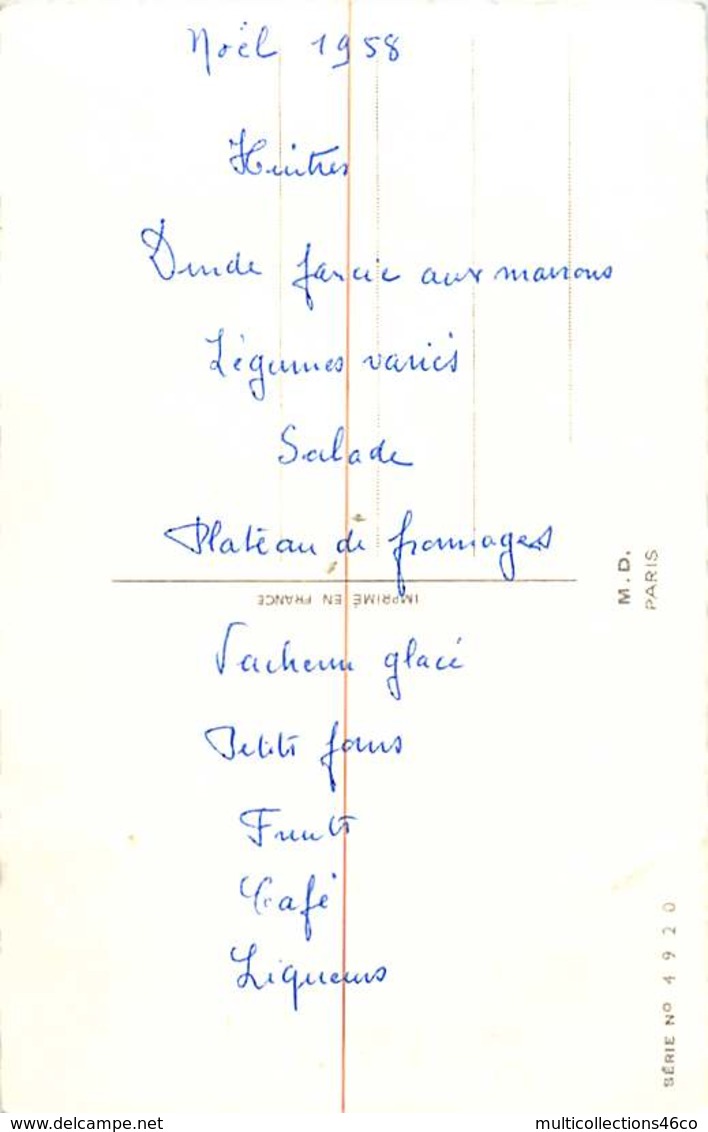 Noël 1958
Huîtres
Dinde farcie aux marrons
Légumes variés
Salade
Plateau de fromages
IMPRIMÉ EN FRANCE
M.D.
PARIS
Vacherin glacé
Petits fours
Fruits
Café
Liqueurs
SÉRIE Nº 4920
www.delcampe.net
multicollections46co